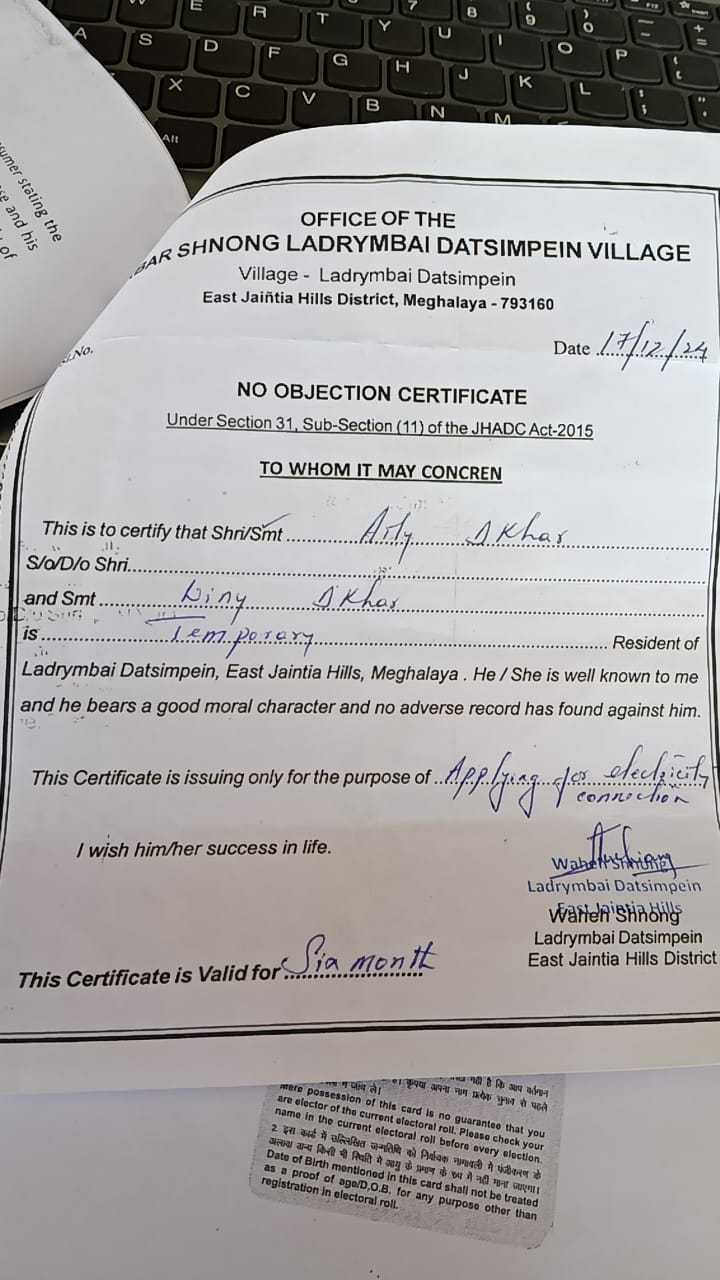 OFFICE OF THE
BAR SHNONG LADRYMBAI DATSIMPEIN VILLAGE
Village - Ladrymbai Datsimpein
East Jaiñtia Hills District, Meghalaya - 793160
No.
Date 17/12/24
NO OBJECTION CERTIFICATE
Under Section 31, Sub-Section (11) of the JHADC Act-2015
TO WHOM IT MAY CONCREN
This is to certify that Shri/Smt Dkhar
S/o/D/o Shri
and Smt Dkhar
is Temporary Resident of
Ladrymbai Datsimpein, East Jaintia Hills, Meghalaya . He / She is well known to me
and he bears a good moral character and no adverse record has found against him.
This Certificate is issuing only for the purpose of Applying for electricity
connection
I wish him/her success in life.
Waheh Shnong
Ladrymbai Datsimpein
East Jaintia Hills
Waheh Shnong
Ladrymbai Datsimpein
East Jaintia Hills District
This Certificate is Valid for Six month
umer stating the
se and his
of
नही है कि आप वर्तमान
कृपया अपना नाम प्रत्येक चुनाव से पहले
mere possession of this card is no guarantee that you
are elector of the current electoral roll. Please check your
name in the current electoral roll before every election.
2. इस कार्ड में उल्लिखित जन्मतिथि को निर्वाचक नामावली में पंजीकरण के
अलावा अन्य किसी भी स्थिति में आयु के प्रमाण के रूप में नही माना जाएगा।
Date of Birth mentioned in this card shall not be treated
as a proof of age/D.O.B. for any purpose other than
registration in electoral roll.